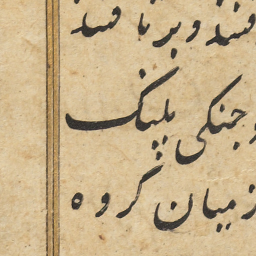 و بر تافتند
و جنکی پلنک
ز میان کروه